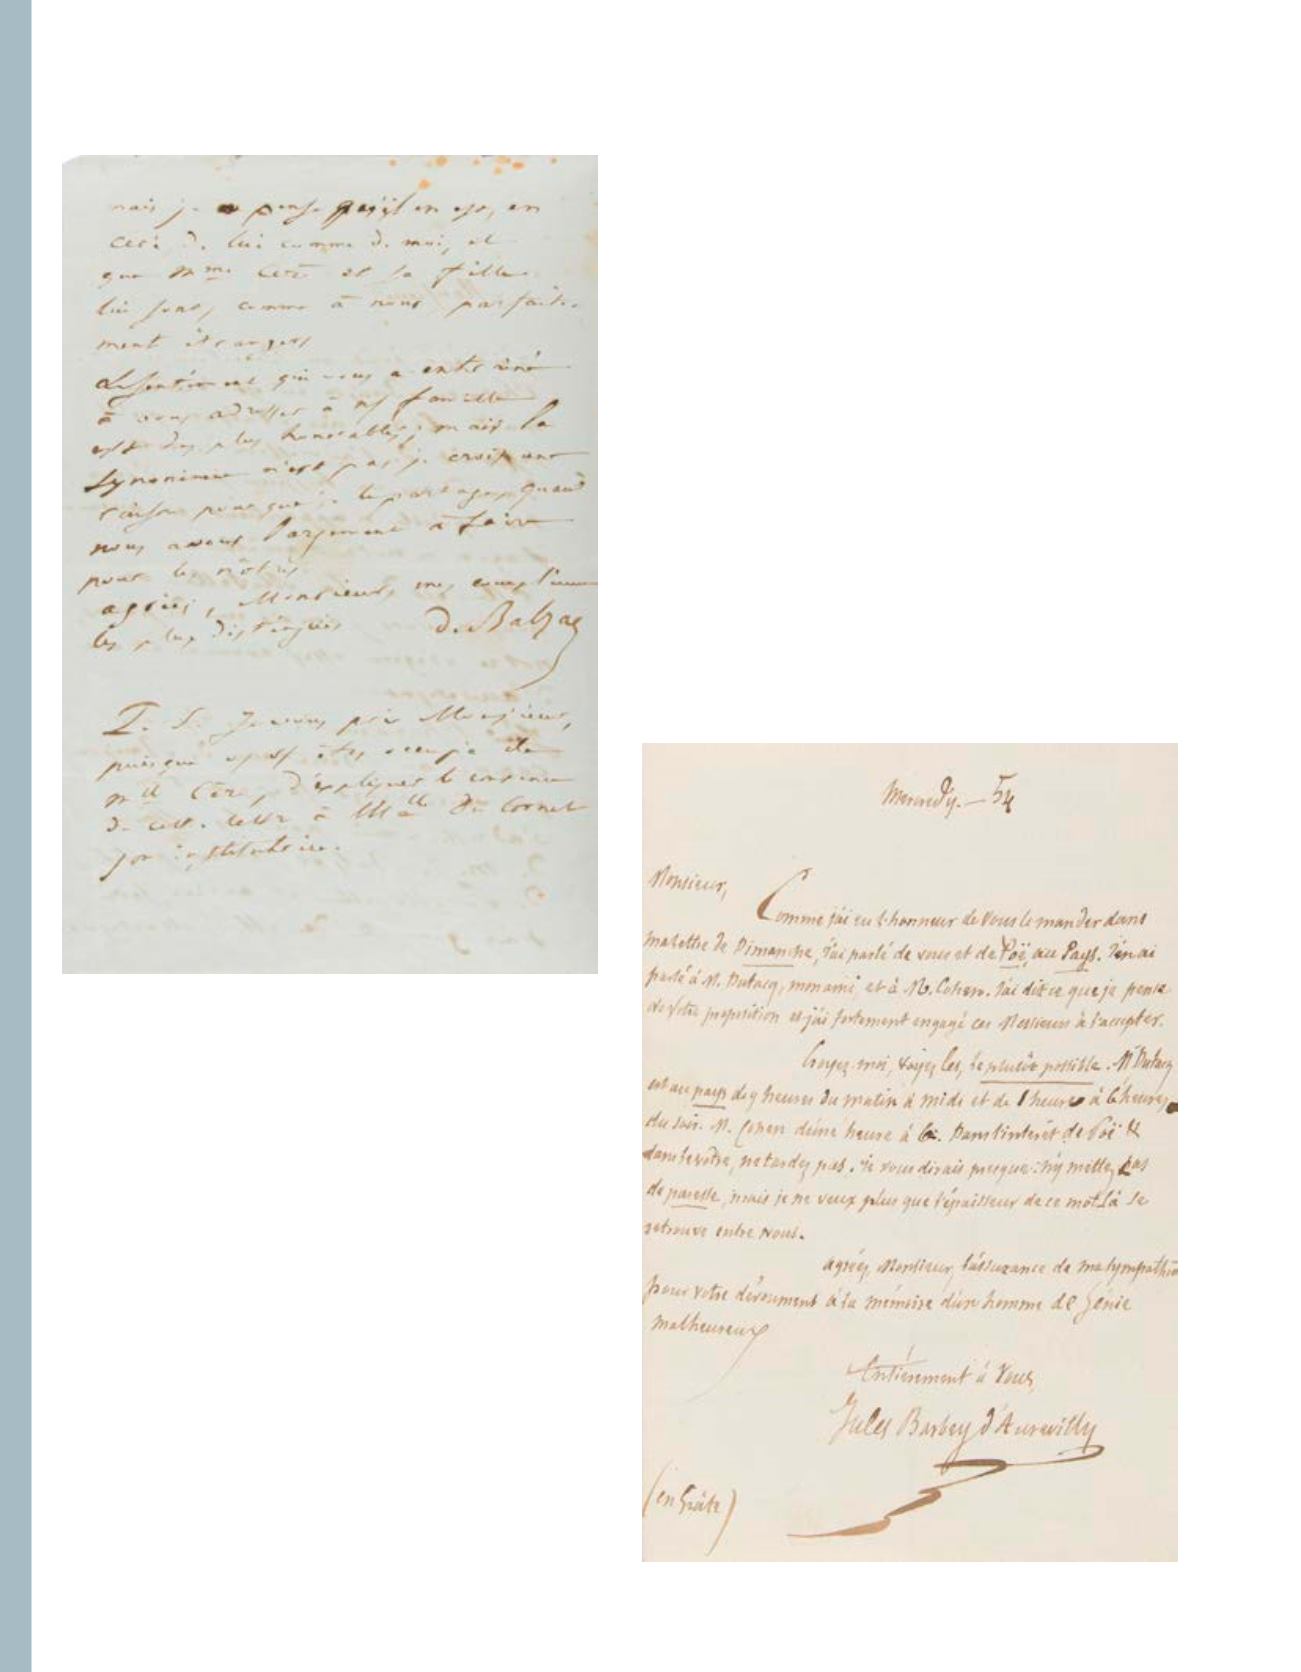 mais je pense qu'il en est, en
ceci de lui comme de moi, et
que Mme Céré et sa fille
lui sont, comme à nous parfaite-
ment étrangers
Le sentiment qui vous a entrainé
à vous adresser à ma famille
est des plus honorables; mais la
synonimie n'est pas je crois une
raison pour que je le partage, quand
nous avons largement à faire
pour les nôtres
agréez, Monsieur, mes complimens
les plus distingués de Balzac
P. S. Je vous prie Monsieur,
puisque vous êtes occupé de
Mlle Céré, d'expliquer le contenu
de cette lettre à Mlle Du Cornet
son institutrice.
Mercredy. — 54
Monsieur,
Comme j'ai eu l'honneur de vous le mander dans
ma lettre de Dimanche, j'ai parlé de vous et de Poë, au Pays. J'en ai
parlé à M. Dutacq, mon ami, et à M. Cohen. J'ai dit ce que je pense
de votre proposition et j'ai fortement engagé ces Messieurs à l'accepter.
Croyez-moi, voyez les, le plutôt possible. Mr Dutacq
est au pays de 9 heures du matin à midi et de 1 heure à 6 heures
du soir. M. Cohen d'une heure à 6. Dans l'intérêt de Poë &
dans le vôtre, ne tardez pas. Je vous dirais presque: n'y mettez pas
de paresse, mais je ne veux plus que l'épaisseur de ce mot là se
retrouve entre nous.
agréez, Monsieur, l'assurance de ma sympathie
pour votre dévoument à la mémoire d'un homme de Génie
malheureux
Entièrement à vous,
Jules Barbey d'Aurevilly
(en hâte)